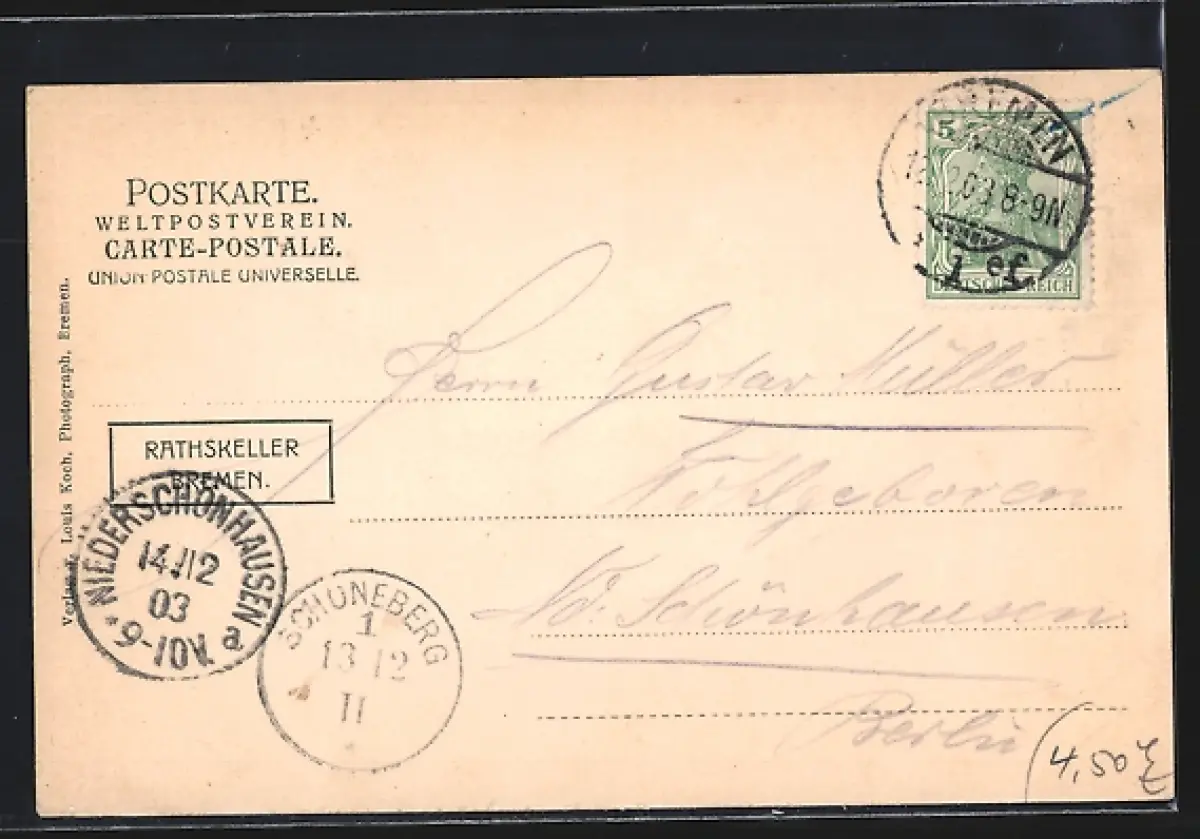 POSTKARTE.
WELTPOSTVEREIN.
CARTE-POSTALE.
UNION POSTALE UNIVERSELLE.
Verlag v. Louis Koch, Photograph, Bremen.
RATHSKELLER
BREMEN.
5
BREMEN
03 8-9N
1 ef
DEUTSCHES REICH
Herrn Gustav Müller
Wohlgeboren
Nd. Schönhausen
Berlin
NIEDERSCHÖNHAUSEN
14 12
03
9-10V. a
SCHÖNEBERG
1
13 12
II
4,50